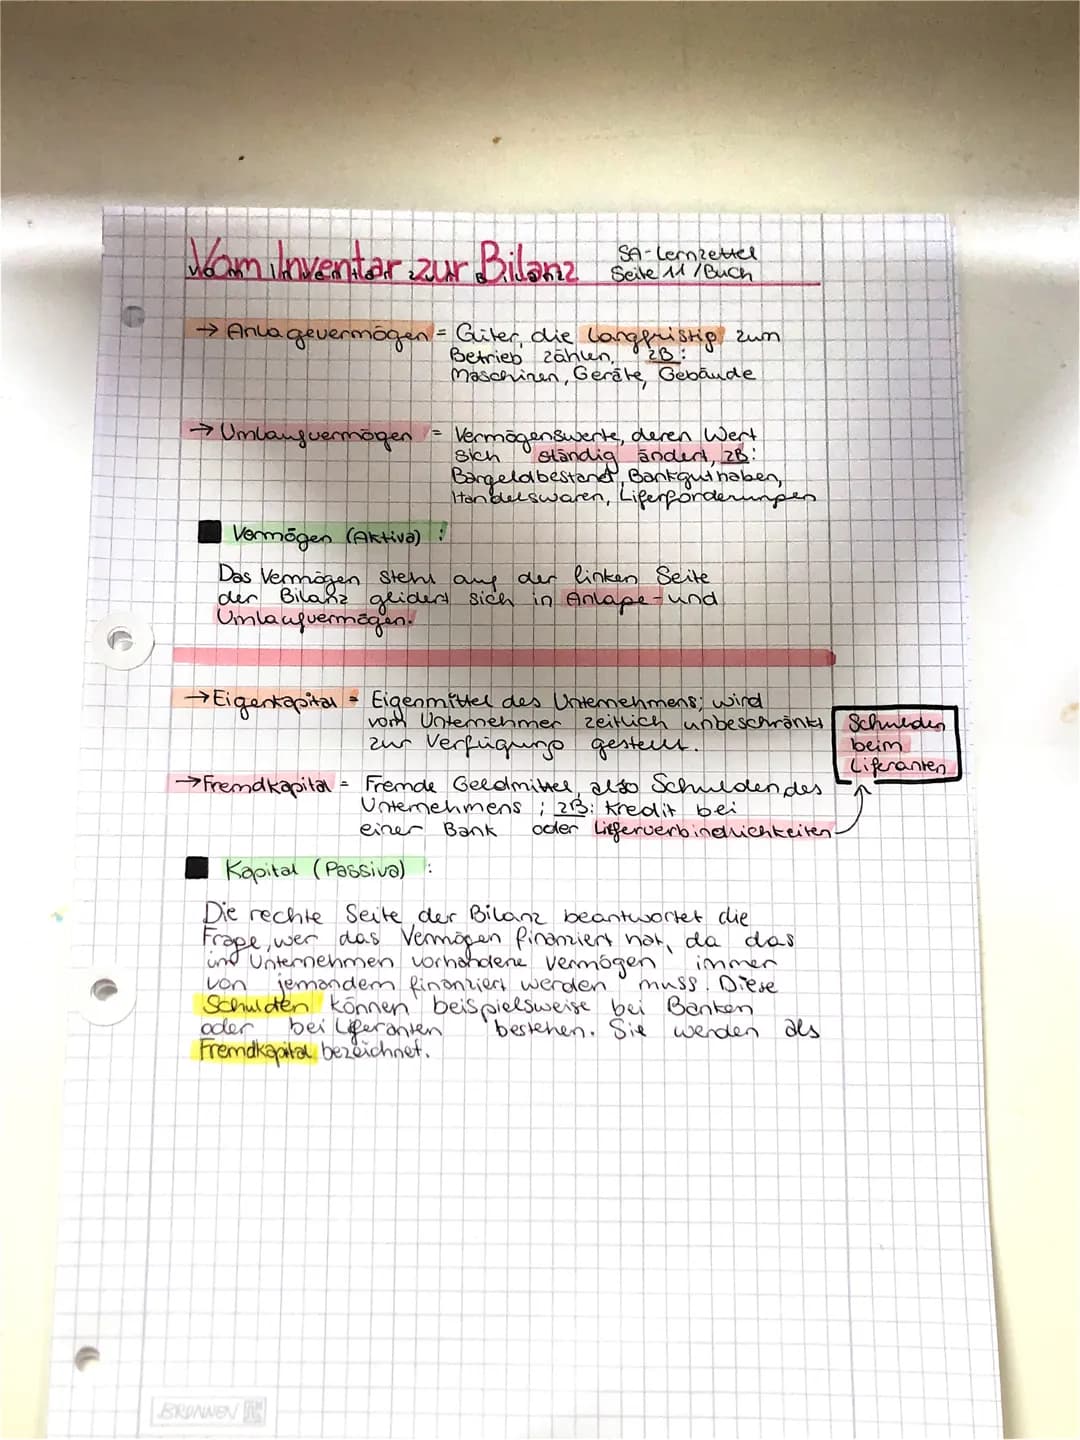 Vom Inventar zur Bilanz
SA-Lernzettel
Seite 11/Buch
→ Anlagevermögen = Güter, die langfristig zum
Betrieb zählen, zB:
Maschinen, Geräte, Gebäude
→ Umlaufvermögen = Vermögenswerte, deren Wert
sich ständig ändert, zB:
Bargeldbestand, Bankguthaben,
Handelswaren, Liferforderungen
Vermögen (Aktiva) :
Das Vermögen steht auf der linken Seite
der Bilanz glidert sich in Anlage- und
Umlaufvermögen.
→ Eigenkapital = Eigenmittel des Unternehmens; wird
vom Unternehmer zeitlich unbeschränkt
zur Verfügung gestellt.
Schulden
beim
Liferanten
→ Fremdkapital = Fremde Geldmittel, also Schulden des
Unternehmens ; zB: Kredit bei
einer Bank oder Liferverbindlichkeiten
Kapital (Passiva) :
Die rechte Seite der Bilanz beantwortet die
Frage, wer das Vermögen finanziert hat, da das
im Unternehmen vorhandene Vermögen immer
von jemandem finanziert werden muss. Diese
Schulden können beispielsweise bei Banken
oder bei Liferanten bestehen. Sie werden als
Fremdkapital bezeichnet.
BRUNNEN